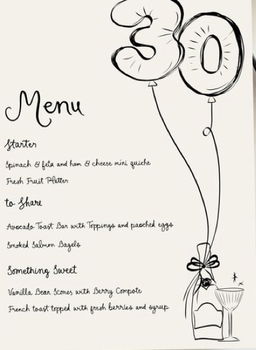 30
Menu
Starter
Spinach & feta and ham & cheese mini quiche
Fresh Fruit Platter
to Share
Avocado Toast Bar with Toppings and paoched eggs
Smoked Salmon Bagels
Something Sweet
Vanilla Bean Scones with Berry Compote
French toast topped with fresh berries and syrup